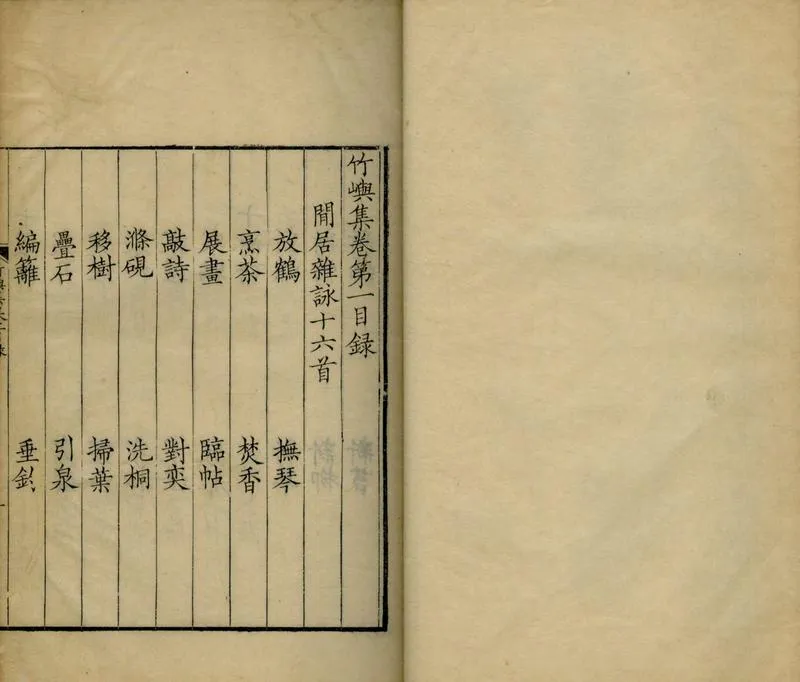 竹嶼集卷第一目録
閒居雜詠十六首
放鶴 撫琴
烹茶 焚香
展畫 臨帖
敲詩 對奕
滌硯 洗桐
移樹 掃葉
疊石 引泉
編籬 垂釣